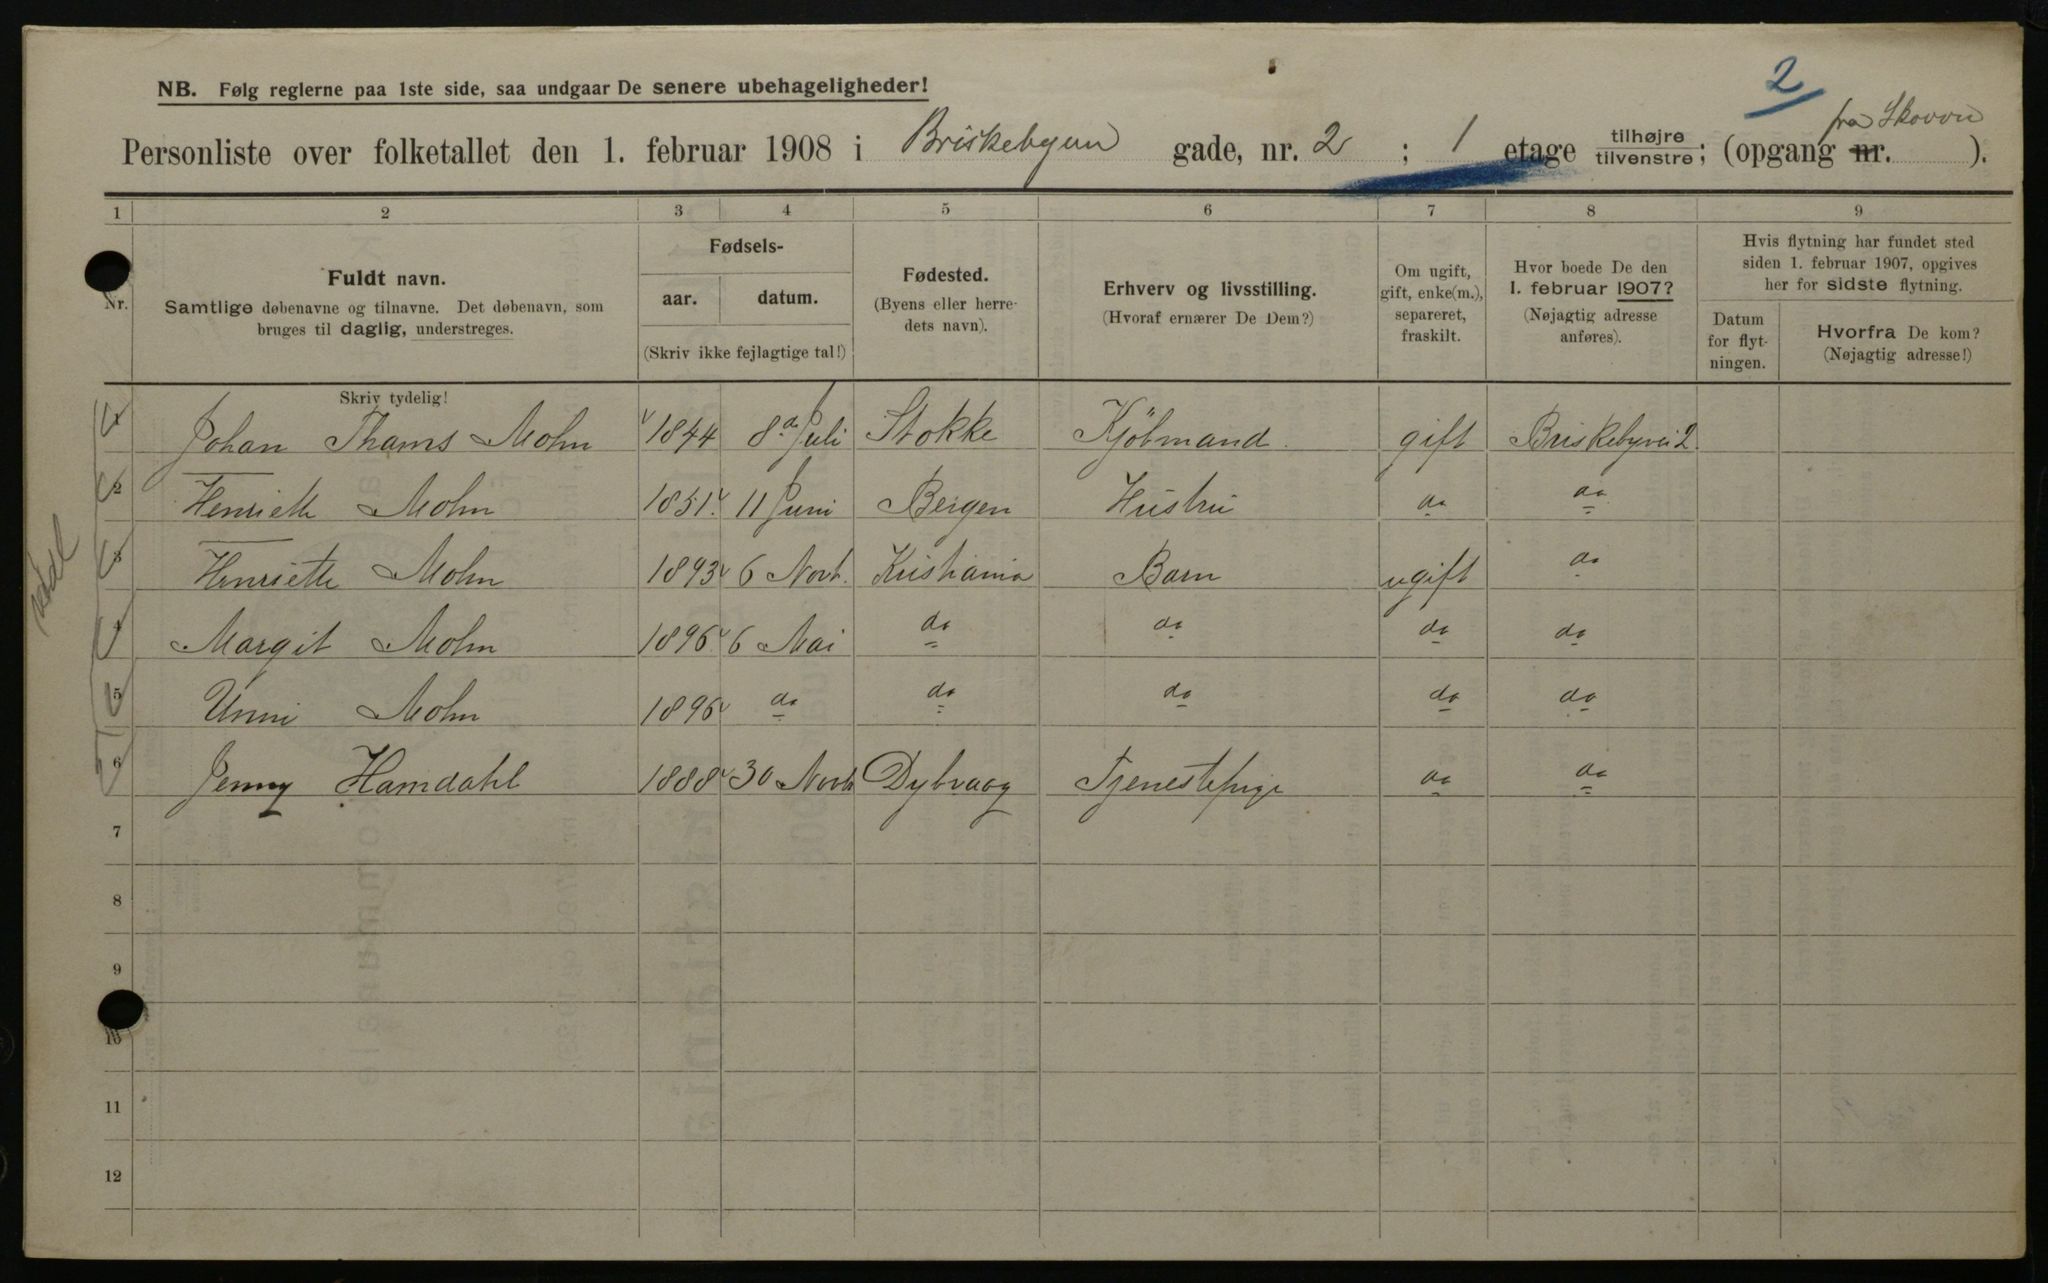 2
NB. Følg reglerne paa 1ste side, saa undgaar De senere ubehageligheder!
fra Skovvn
Personliste over folketallet den 1. februar 1908 i Briskebyven gade, nr. 2 ; 1 etage tilhøjre tilvenstre; (opgang nr. ).
1 2 3 4 5 6 7 8 9
Nr.
Fuldt navn.
Samtlige døbenavne og tilnavne. Det døbenavn, som
bruges til daglig, understreges.
Fødsels-
aar. datum.
(Skriv ikke fejlagtige tal!)
Fødested.
(Byens eller herre-
dets navn).
Erhverv og livsstilling.
(Hvoraf ernærer De Dem?)
Om ugift,
gift, enke(m.),
separeret,
fraskilt.
Hvor boede De den
1. februar 1907?
(Nøjagtig adresse
anføres).
Hvis flytning har fundet sted
siden 1. februar 1907, opgives
her for sidste flytning.
Datum
for flyt-
ningen.
Hvorfra De kom?
(Nøjagtig adresse!)
Skriv tydelig!
1 Johan Thams Mohn 1844 8de Juli Stokke Kjöbmand. gift Briskebyvei 2.
2 Henriette Mohn 1851. 11 Juni Bergen Hustru do do
3 Henriette Mohn 1893 6 Novb. Kristiania Barn ugift do
4 Margit Mohn 1896 6 Mai do do do do
5 Unni Mohn 1896 do do do do do
6 Jenny Hamdahl 1888 30 Novb Dybvaag Tjenestepige do do
7
8
9
10
11
12